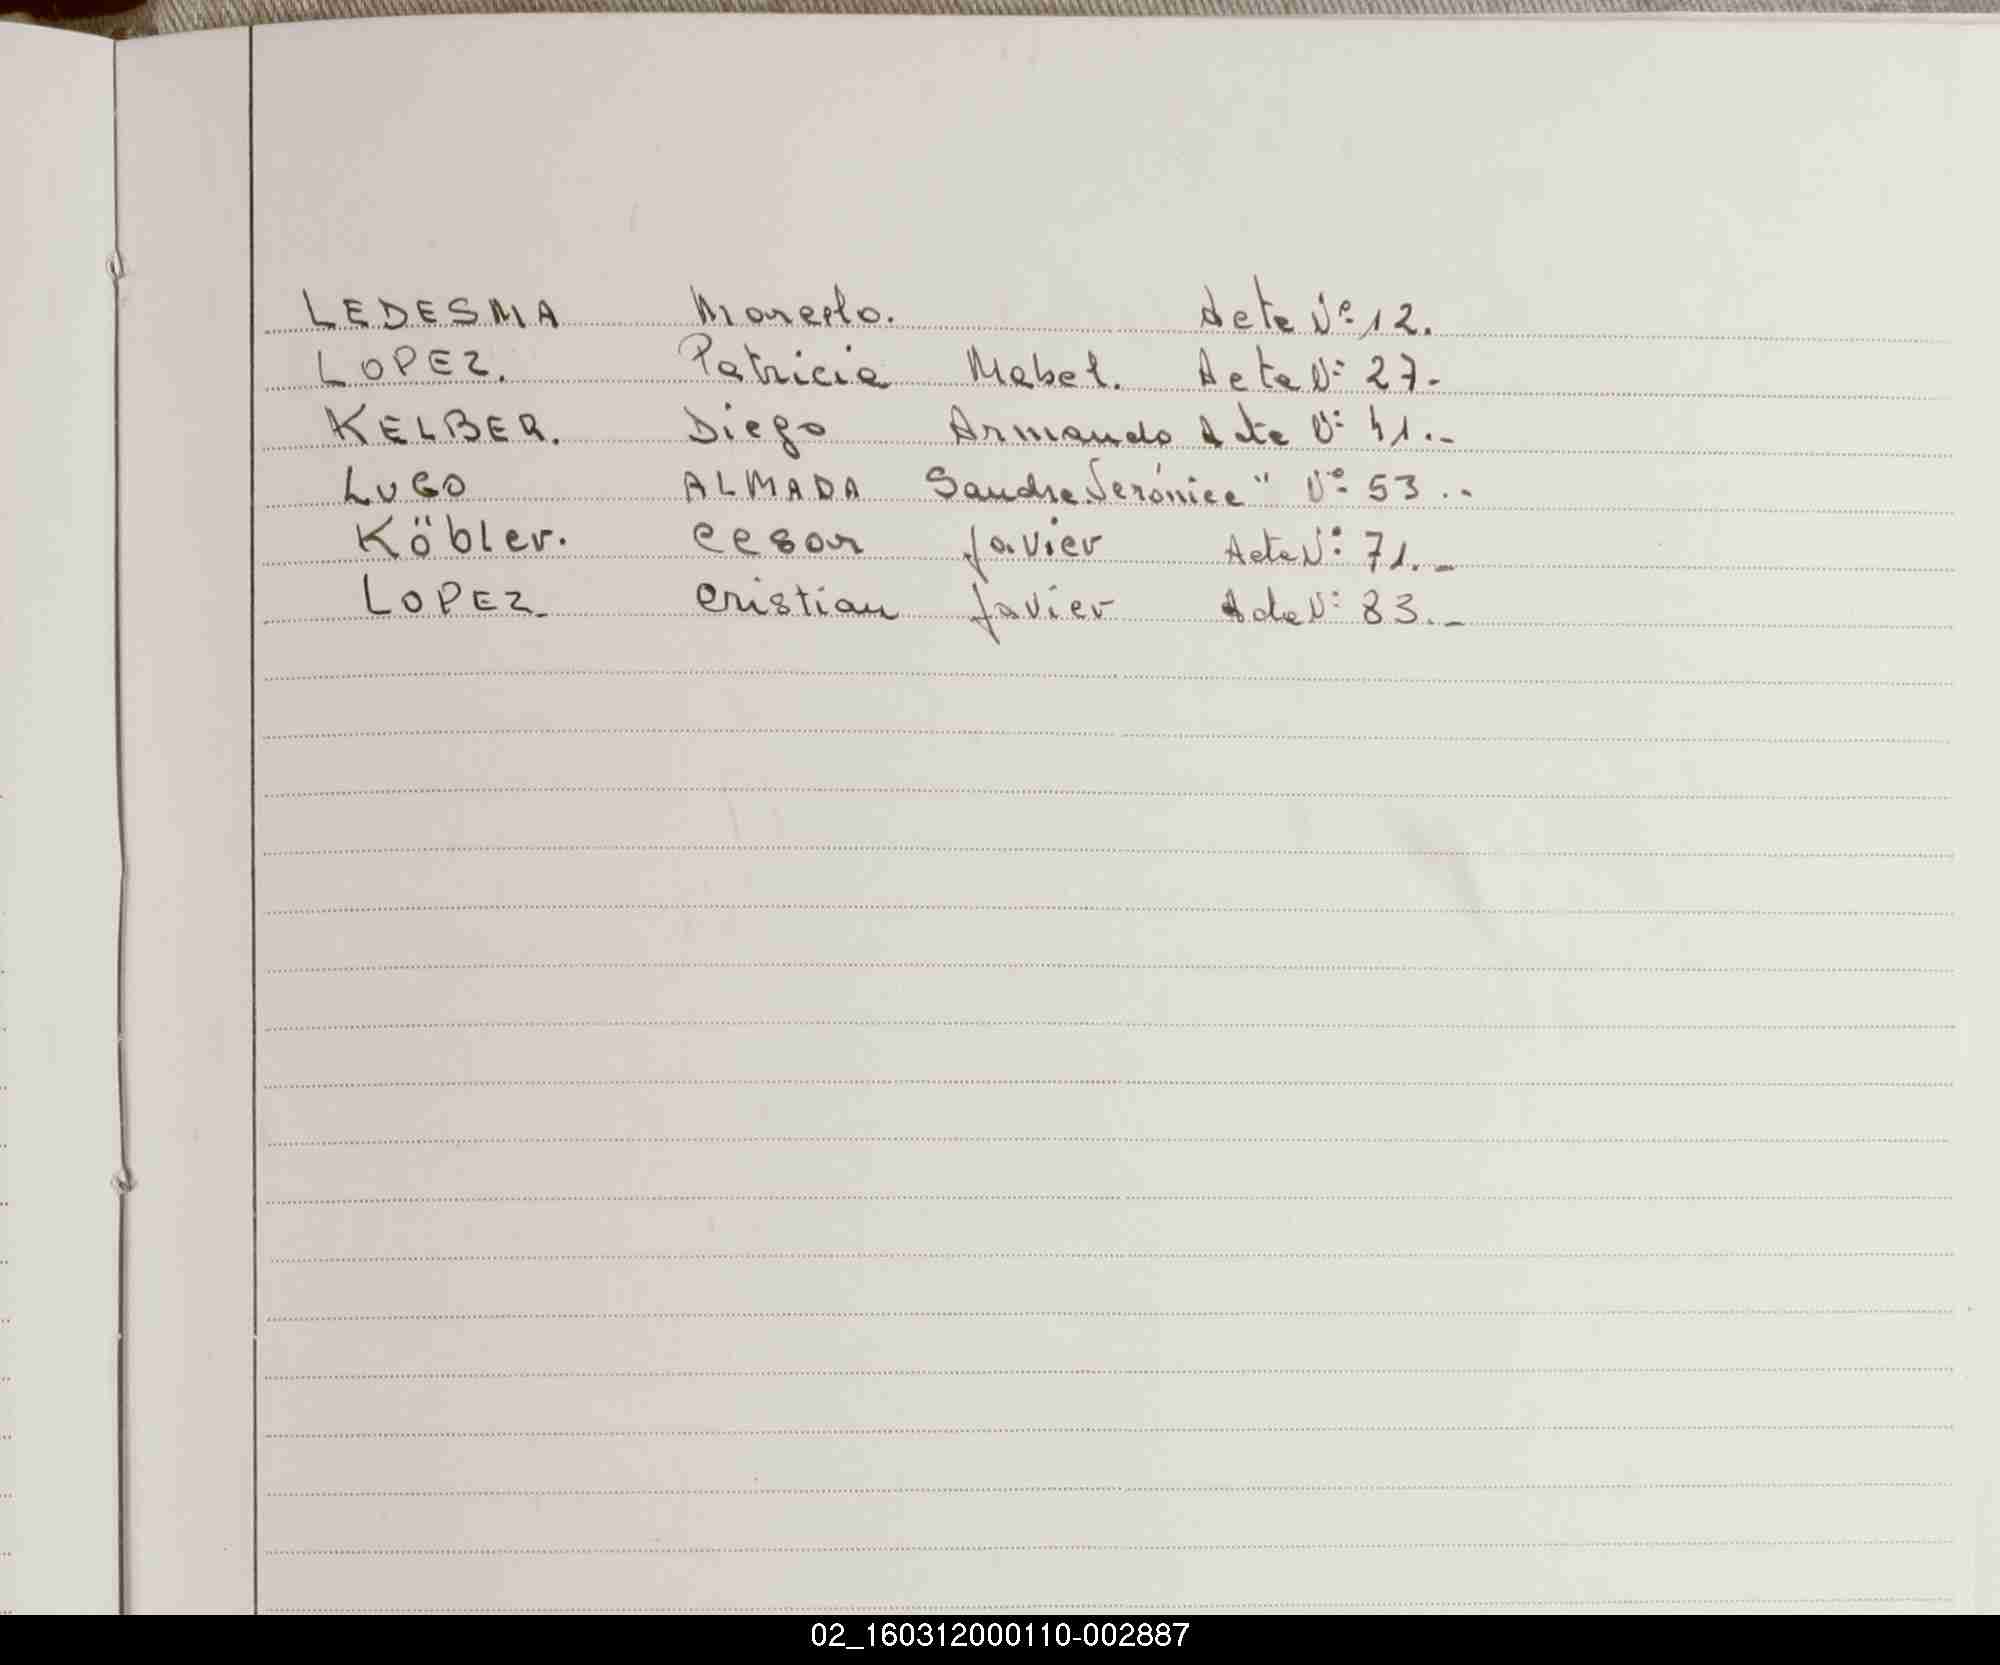 LEDESMA Marcelo. Acta Nº 12.
LOPEZ. Patricia Mabel. Acta Nº 27.-
KELBER. Diego Armando Acta Nº 41..-
LUGO ALMADA Sandra Verónica " Nº 53..-
Köbler. Cesar Javier Acta Nº 71.-
LOPEZ. Cristian Javier Acta Nº 83.-
02_160312000110-002887